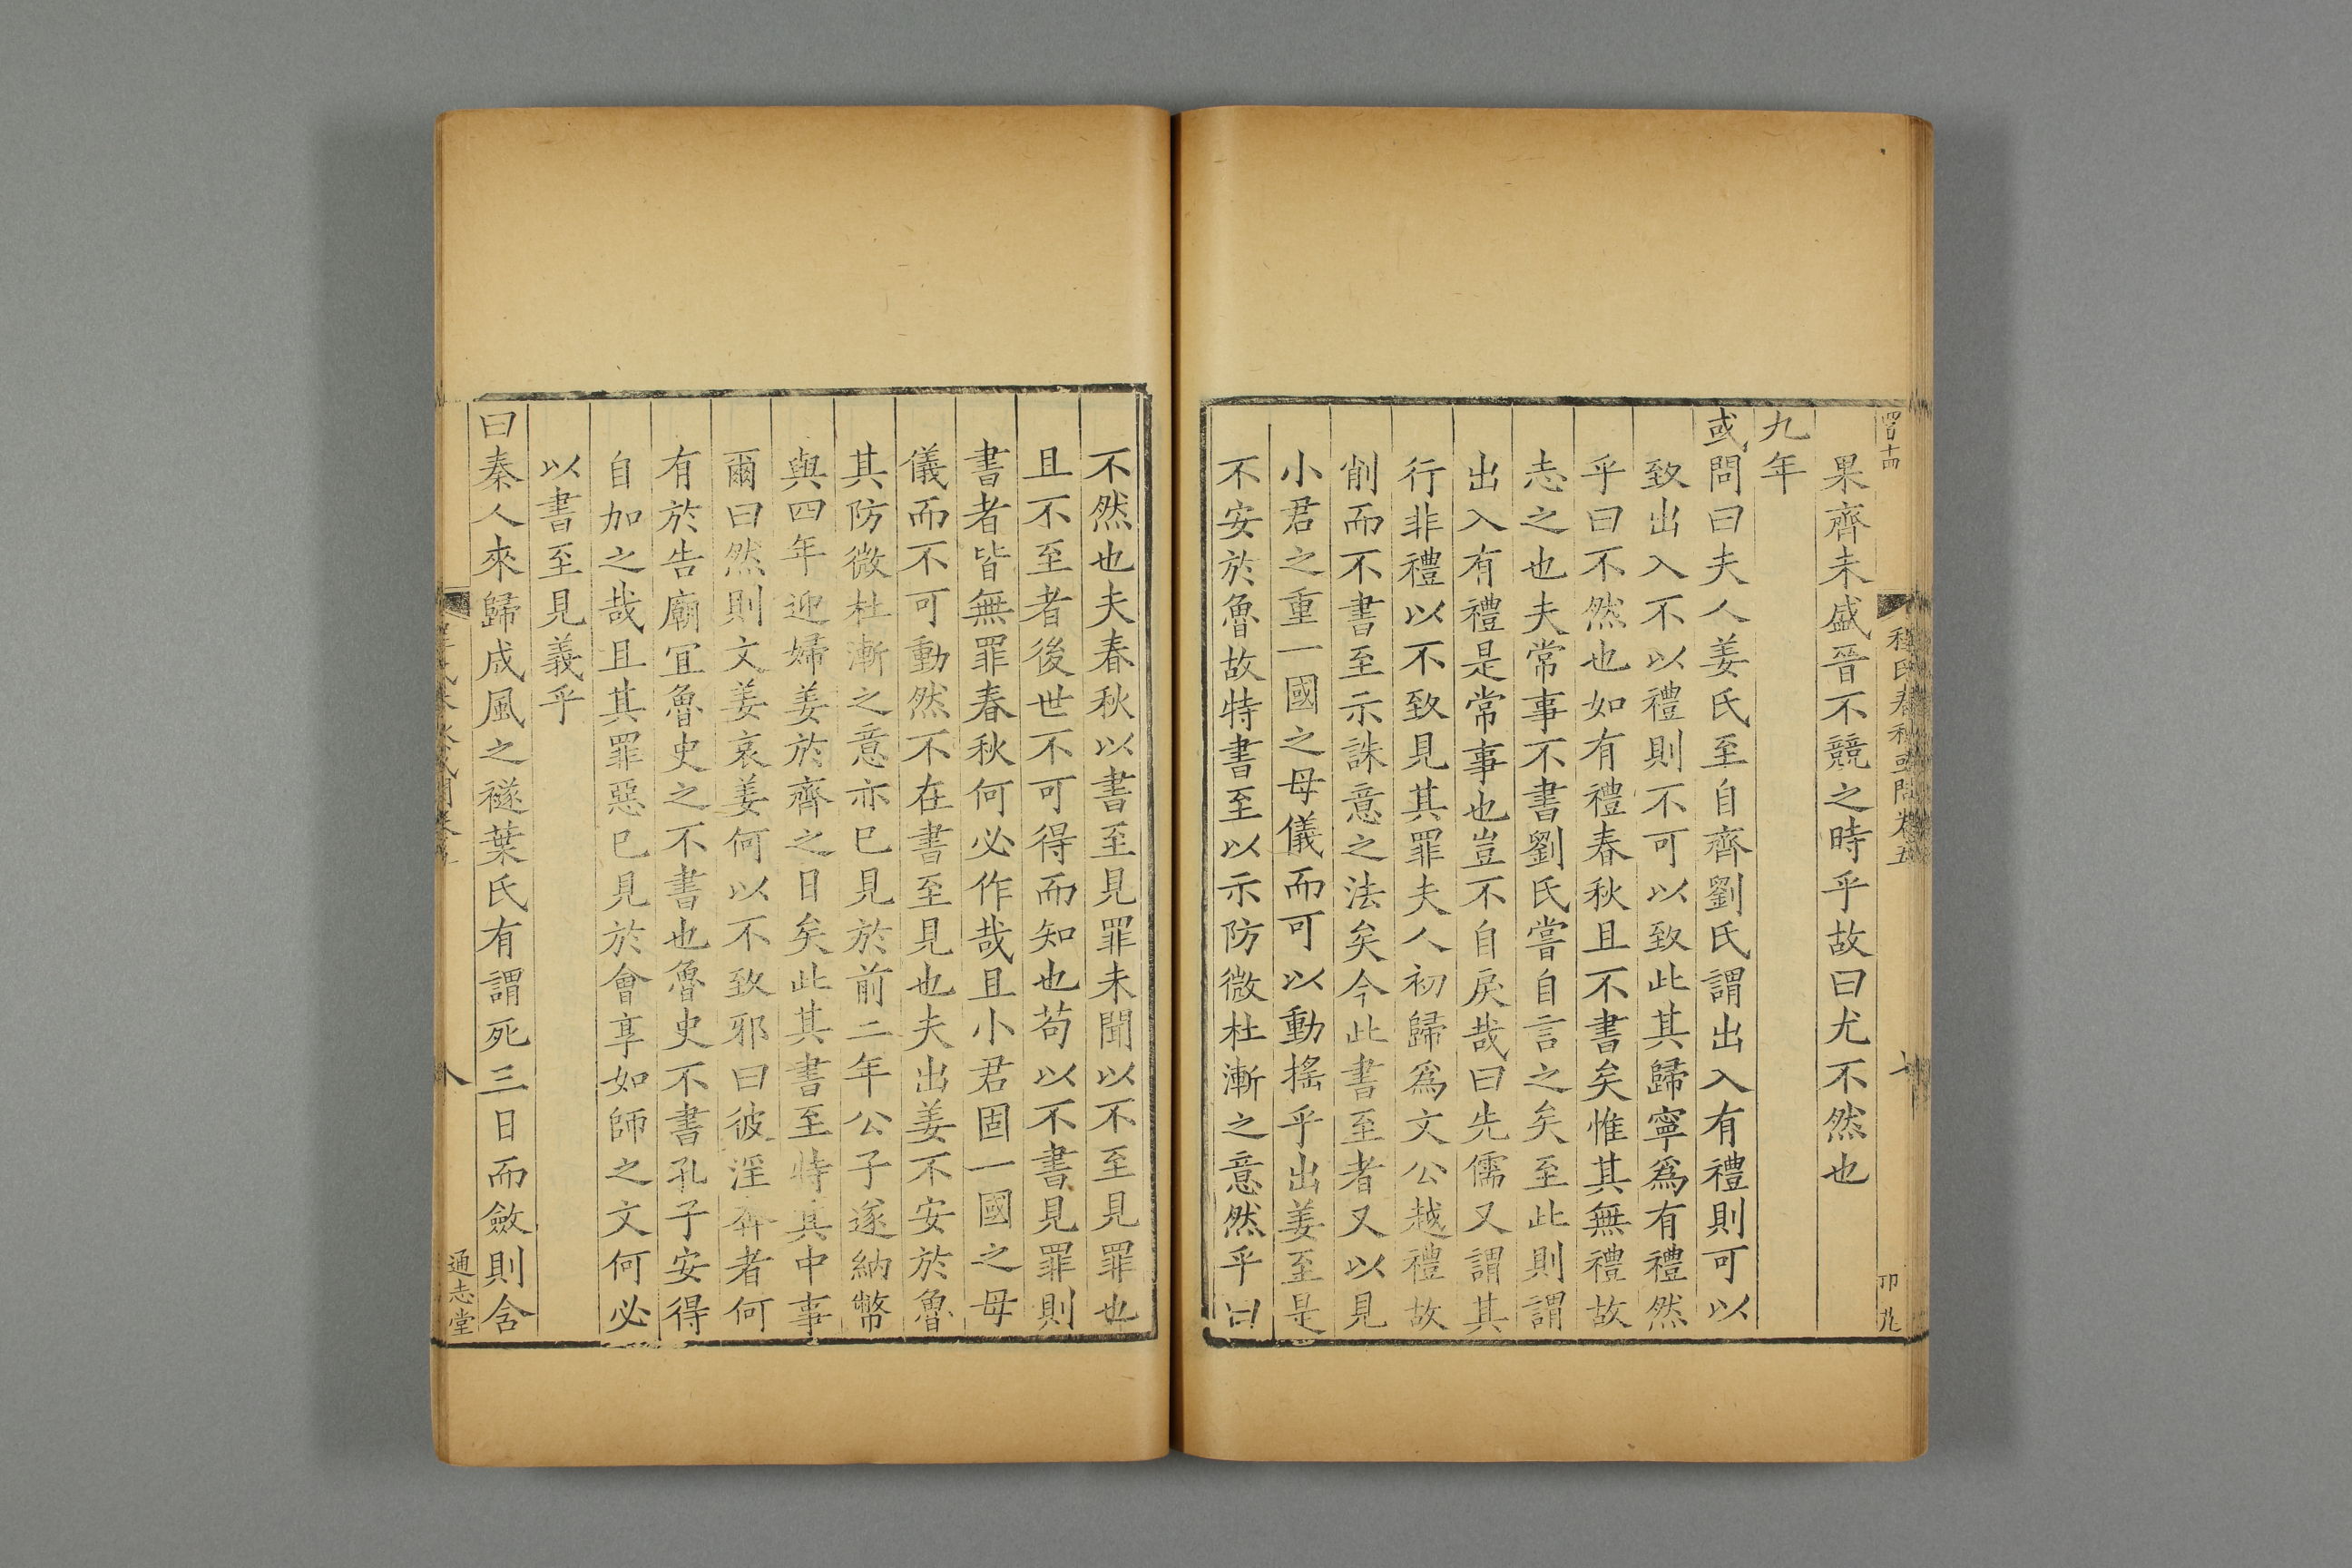 四百十四
程氏春秋或問卷五
果齊未盛晉不競之時乎故曰尤不然也
九年
或問曰夫人姜氏至自齊劉氏謂出入有禮則可以
致出入不以禮則不可以致此其歸寧爲有禮然
乎曰不然也如有禮春秋且不書矣惟其無禮故
志之也夫常事不書劉氏嘗自言之矣至此則謂
出入有禮是常事也豈不自戾哉曰先儒又謂其
行非禮以不致見其罪夫人初歸爲文公越禮故
削而不書至示誅意之法矣今此書至者又以見
小君之重一國之母儀而可以動搖乎出姜至是
不安於魯故特書至以示防微杜漸之意然乎曰
不然也夫春秋以書至見罪未聞以不至見罪也
且不至者後世不可得而知也苟以不書見罪則
書者皆無罪春秋何必作哉且小君固一國之母
儀而不可動然不在書至見也夫出姜不安於魯
其防微杜漸之意亦巳見於前二年公子遂納幣
與四年迎婦姜於齊之日矣此其書至特其中事
爾曰然則文姜哀姜何以不致邪曰彼淫奔者何
有於告廟宜魯史之不書也魯史不書孔子安得
自加之哉且其罪惡巳見於會享如師之文何必
以書至見義乎
曰秦人來歸成風之襚葉氏有謂死三日而斂則含
八
通志堂